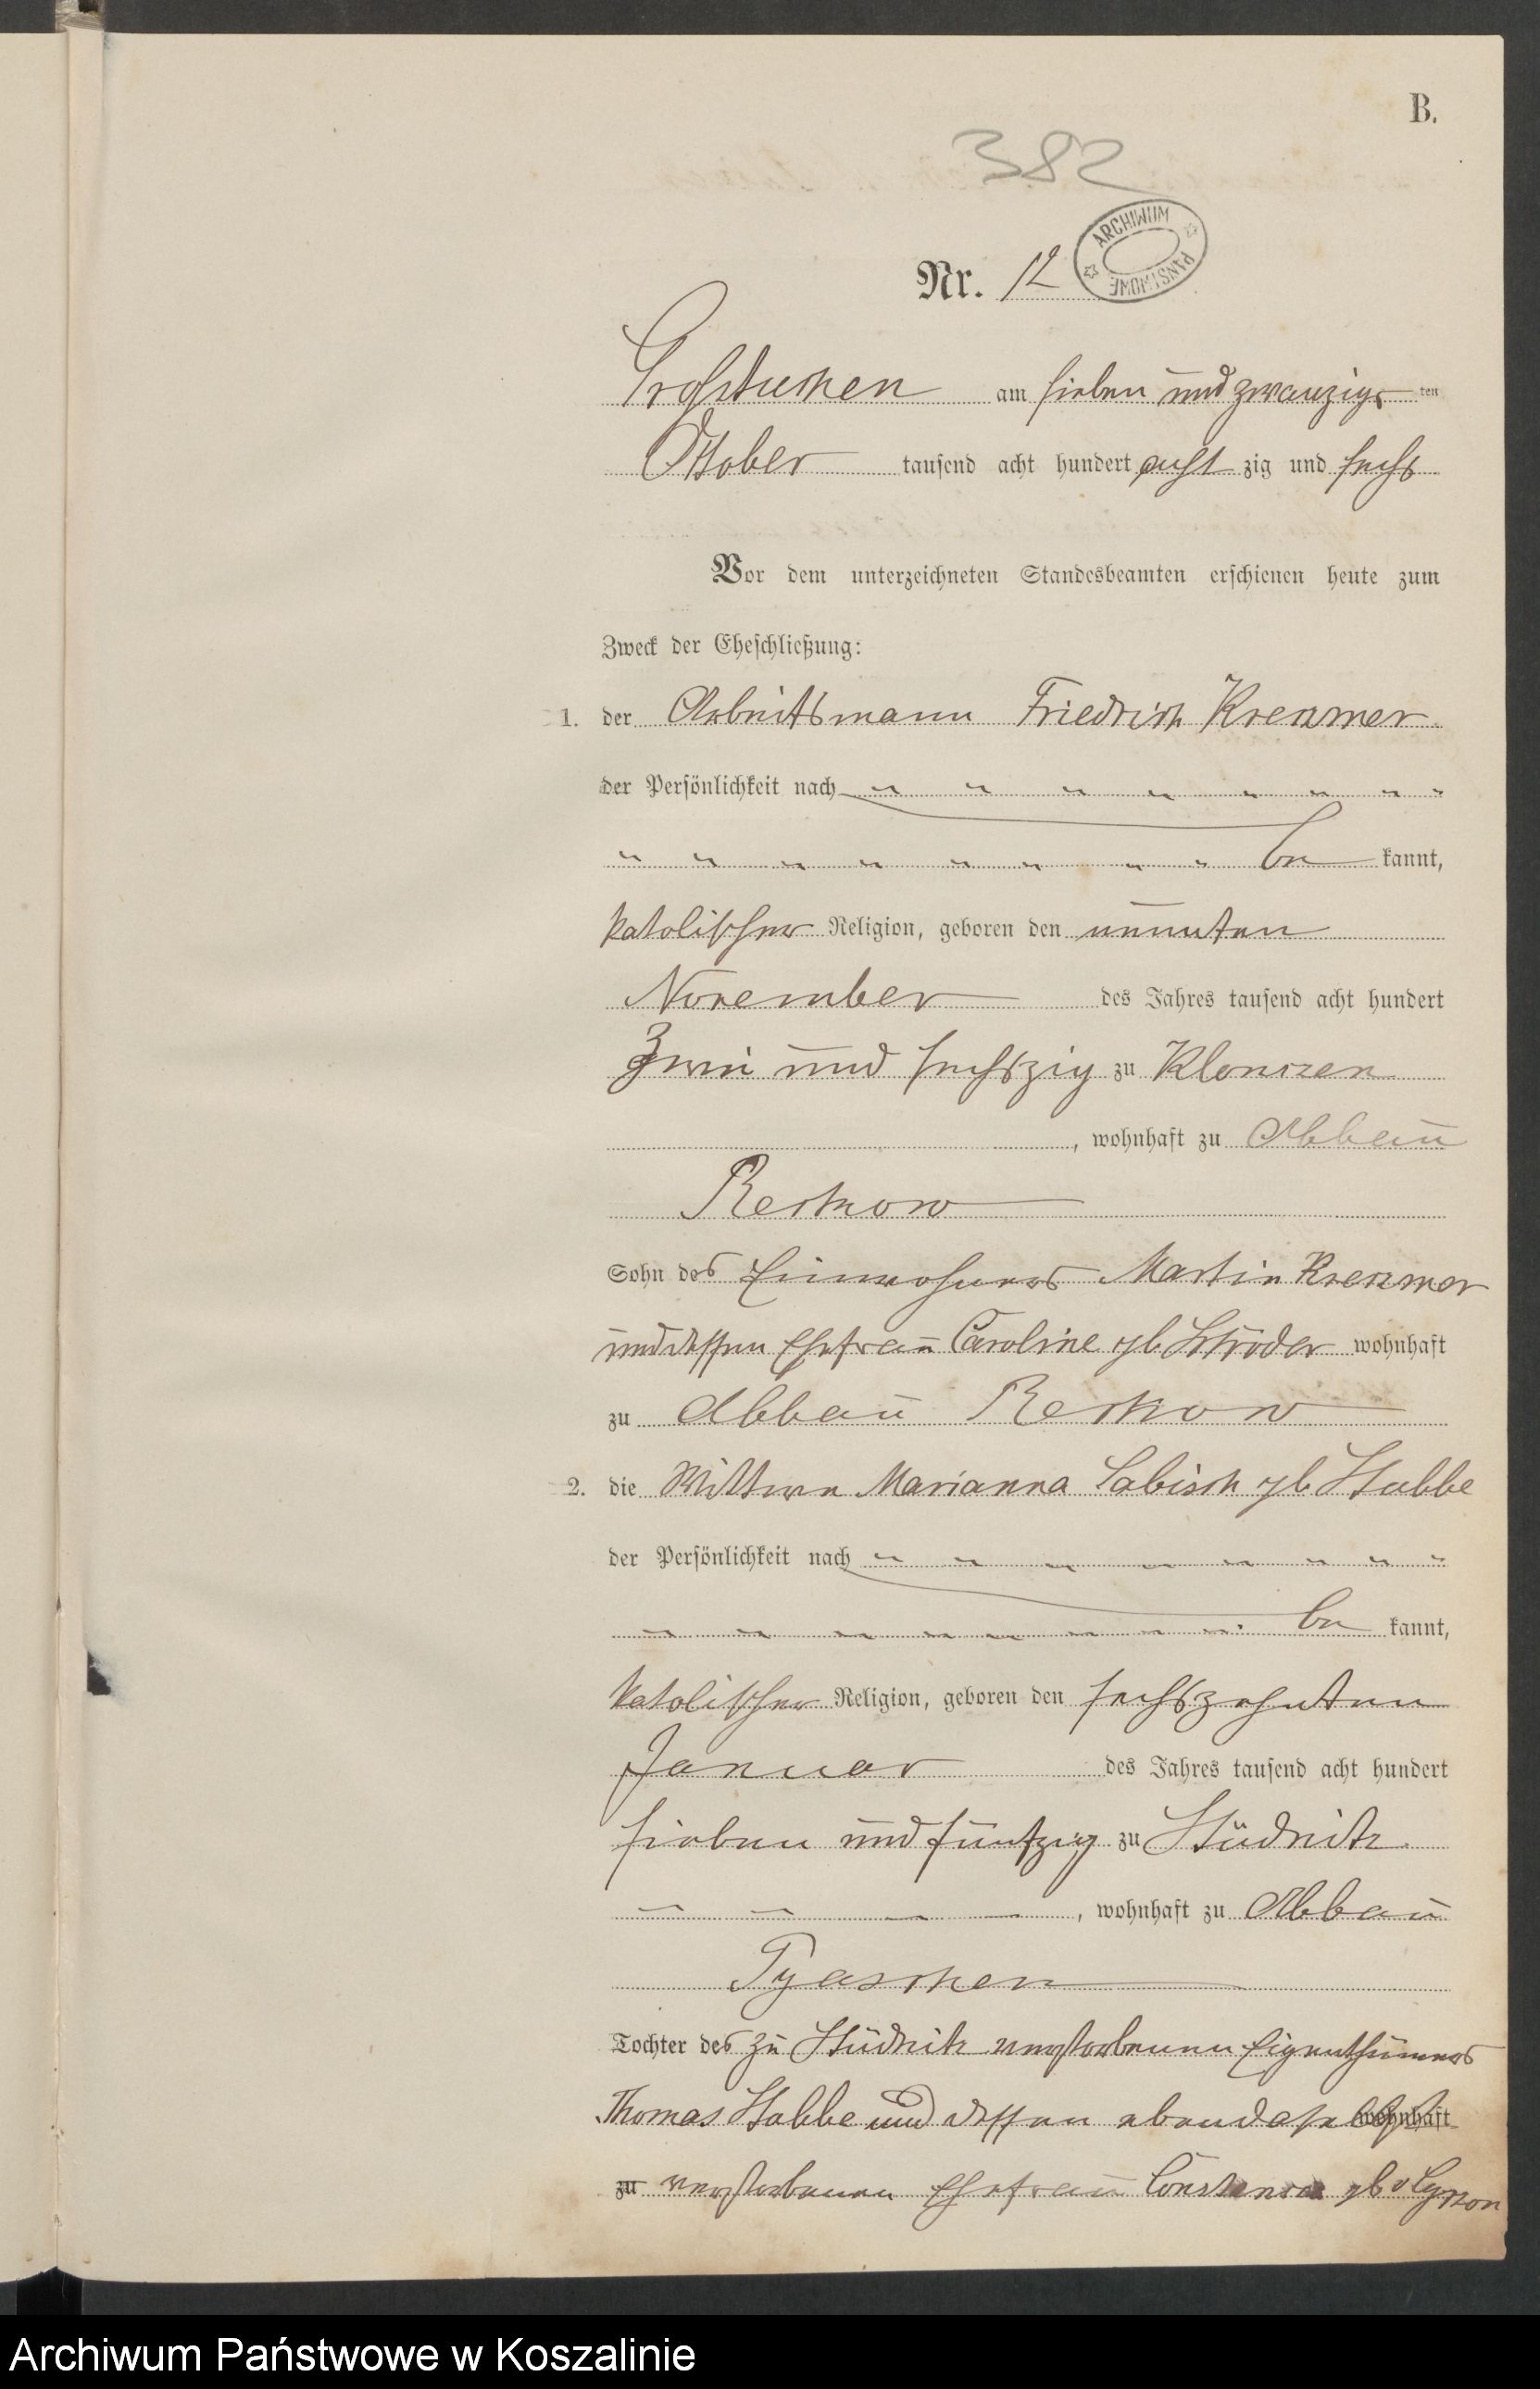 B.
382
Nr. 12
ARCHIWUM PAŃSTWOWE
Großtuchen am sieben und zwanzigs ten
Oktober tausend acht hundert acht zig und sechs
Vor dem unterzeichneten Standesbeamten erschienen heute zum
Zweck der Eheschließung:
1. der Arbeitsmann Friedrich
der Persönlichkeit nach
be kannt,
katolischer Religion, geboren den neunten
November des Jahres tausend acht hundert
zwei und sechszig zu Klonczen
, wohnhaft zu Abbau
Reckow
Sohn des Einwohners Martin
und dessen Ehefrau Caroline gb Schröder wohnhaft
zu Abbau Reckow
2. die Wittwe Marianna Labisch gb Stubbe
der Persönlichkeit nach
be kannt,
katolischer Religion, geboren den sechszehnten
Januar des Jahres tausend acht hundert
sieben und fünfzig zu Stüdnitz
, wohnhaft zu Abbau
Pyaschen
Tochter des zu Stüdnitz verstorbenen Eigenthümers
Thomas Stubbe und dessen ebendaselbst wohnhaft
zu verstorbenen Ehefrau gb v
Archiwum Państwowe w Koszalinie